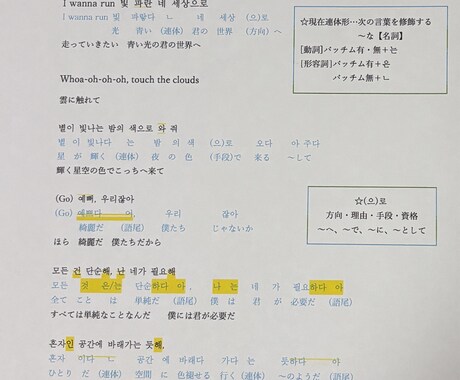 I wanna run 빛 파란 네 세상으로
I wanna run 빛 파랗다 ㄴ 네 세상 (으)로
光 青い (連体) 君の 世界 (方向) へ
走っていきたい 青い光の君の世界へ
☆現在連体形…次の言葉を修飾する
～な【名詞】
[動詞]パッチム有・無＋는
[形容詞]パッチム有＋은
パッチム無＋ㄴ
Whoa-oh-oh-oh, touch the clouds
雲に触れて
별이 빛나는 밤의 색으로 와 줘
별 이 빛나다 는 밤 의 색 (으)로 오다 아 주다
星 が 輝く (連体) 夜 の 色 (手段)で 来る ～して
輝く星空の色でこっちへ来て
(Go) 예뻐, 우리잖아
(Go) 예쁘다 어, 우리 잖아
綺麗だ (語尾) 僕たち じゃないか
ほら 綺麗だ 僕たちだから
☆(으)로
方向・理由・手段・資格
～へ、～で、～に、～として
모든 건 단순해, 난 네가 필요해
모든 것 은/는 단순하다 아, 나 는 네 가 필요하다 아
全て こと は 単純だ (語尾) 僕 は 君 が 必要だ (語尾)
すべては単純なことなんだ 僕には君が必要だ
혼자인 공간에 바래가는 듯해,
혼자 이다 ㄴ 공간 에 바래다 가다 는 듯하다 야
ひとり だ (連体) 空間 に 色褪せる 行く (連体) ～のようだ (語尾)